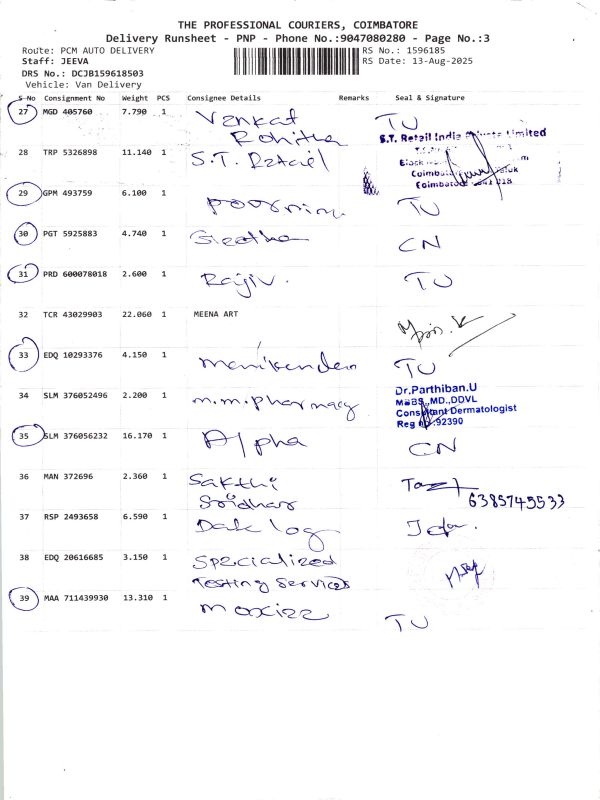 THE PROFESSIONAL COURIERS, COIMBATORE
Delivery Runsheet - PNP - Phone No.:9047080280 - Page No.:3
Route: PCM AUTO DELIVERY RS No.: 1596185
Staff: JEEVA RS Date: 13-Aug-2025
DRS No.: DCJB159618503
Vehicle: Van Delivery
S No Consignment No Weight PCS Consignee Details Remarks Seal & Signature
27 MGD 405760 7.790 1 Venkat TU
Rohitha
S.T. Retail India Private Limited
28 TRP 5326898 11.140 1 S.T. Retail
Coimbatore 641 218
29 GPM 493759 6.100 1 TU
30 PGT 5925883 4.740 1 CN
31 PRD 600078018 2.600 1 Rajiv. TU
32 TCR 43029903 22.060 1 MEENA ART
33 EDQ 10293376 4.150 1 Manikanden TU
34 SLM 376052496 2.200 1 m.m.pharmacy
Dr.Parthiban.U
MBBS.,MD.,DDVL
Consultant Dermatologist
Reg no:92390
35 SLM 376056232 16.170 1 Alpha CN
36 MAN 372696 2.360 1 Sakthi
Sridhar 6385745533
37 RSP 2493658 6.590 1
38 EDQ 20616685 3.150 1 Specialized
Testing Services
39 MAA 711439930 13.310 1 TU